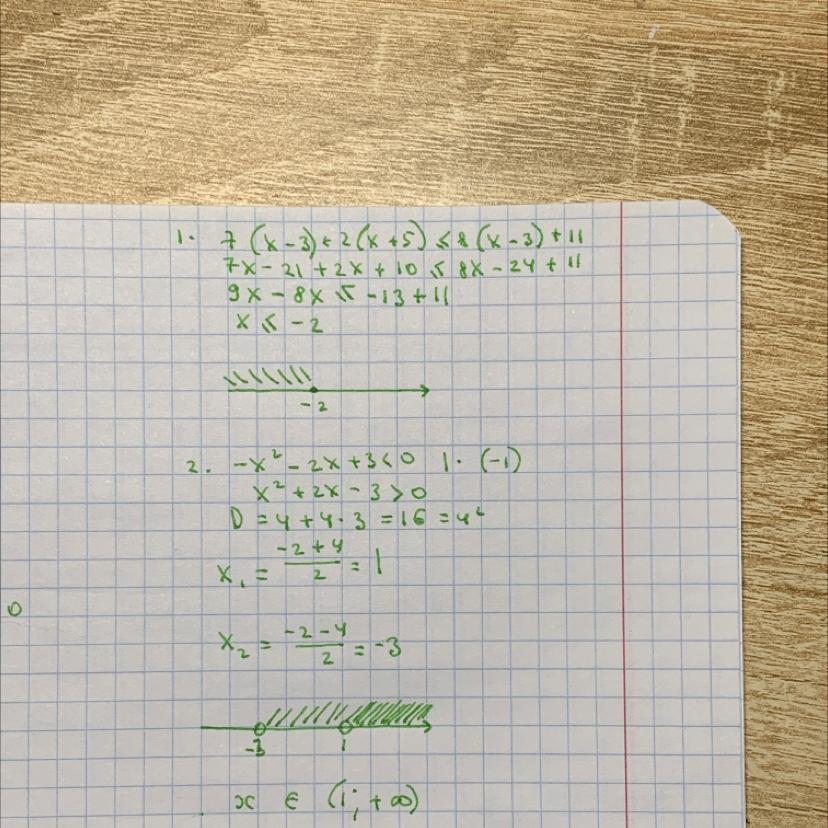 1. 7(x-3)+2(x+5)≤8(x-3)+11
7x-21+2x+10≤8x-24+11
9x-8x≤-13+11
x≤-2
-2
2. -x²-2x+3<0 |·(-1)
x²+2x-3>0
D=4+4·3=16=4²
x₁=(-2+4)/2=1
0
x₂=(-2-4)/2=-3
-3 1
x ∈ (1;+∞)